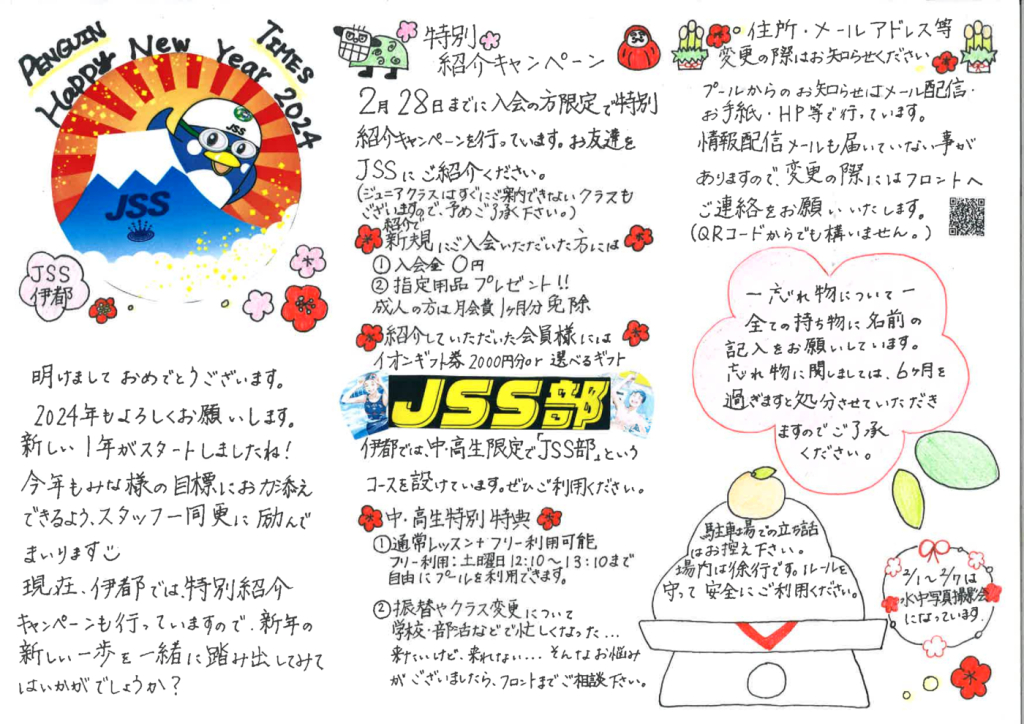 PENGUIN TIMES
Happy New Year 2024
JSS
JSS
JSS
伊都
明けましておめでとうございます。
2024年もよろしくお願いします。
新しい1年がスタートしましたね!
今年もみな様の目標にお力添え
できるよう、スタッフ一同更に励んで
まいります
現在、伊都では特別紹介
キャンペーンも行っていますので、新年の
新しい一歩を一緒に踏み出してみて
はいかがでしょうか?
特別
紹介キャンペーン
2月28日までに入会の方限定で特別
紹介キャンペーンを行っています。お友達を
JSSにご紹介ください。
(ジュニアクラスはすぐにご案内できないクラスも
ございますので、予めご了承下さい。)
紹介で
新規にご入会いただいた方には
①入会金 〇円
②指定用品プレゼント!!
成人の方は月会費1ヶ月分免除
紹介していただいた会員様には
イオンギフト券2000円分or選べるギフト
JSS部
伊都では、中・高生限定で「JSS部」という
コースを設けています。ぜひご利用ください。
中・高生特別特典
①通常レッスン+フリー利用可能
フリー利用:土曜日12:10~13:10まで
自由にプールを利用できます。
②振替やクラス変更について
学校・部活などで忙しくなった...
来たいけど、来れない...そんなお悩み
がございましたら、フロントまでご相談下さい。
住所・メールアドレス等
変更の際はお知らせください
プールからのお知らせはメール配信・
お手紙・HP等で行っています。
情報配信メールも届いていない事が
ありますので、変更の際にはフロントへ
ご連絡をお願いいたします。
(QRコードからでも構いません。)
ー忘れ物についてー
全ての持ち物に名前の
記入をお願いしています。
忘れ物に関しましては、6ヶ月を
過ぎますと処分させていただき
ますのでご了承
ください。
駐車場での立ち話
はお控え下さい。
場内は徐行です。ルールを
守って安全にご利用ください。
2/1~2/7は
水中写真撮影会
になっています。